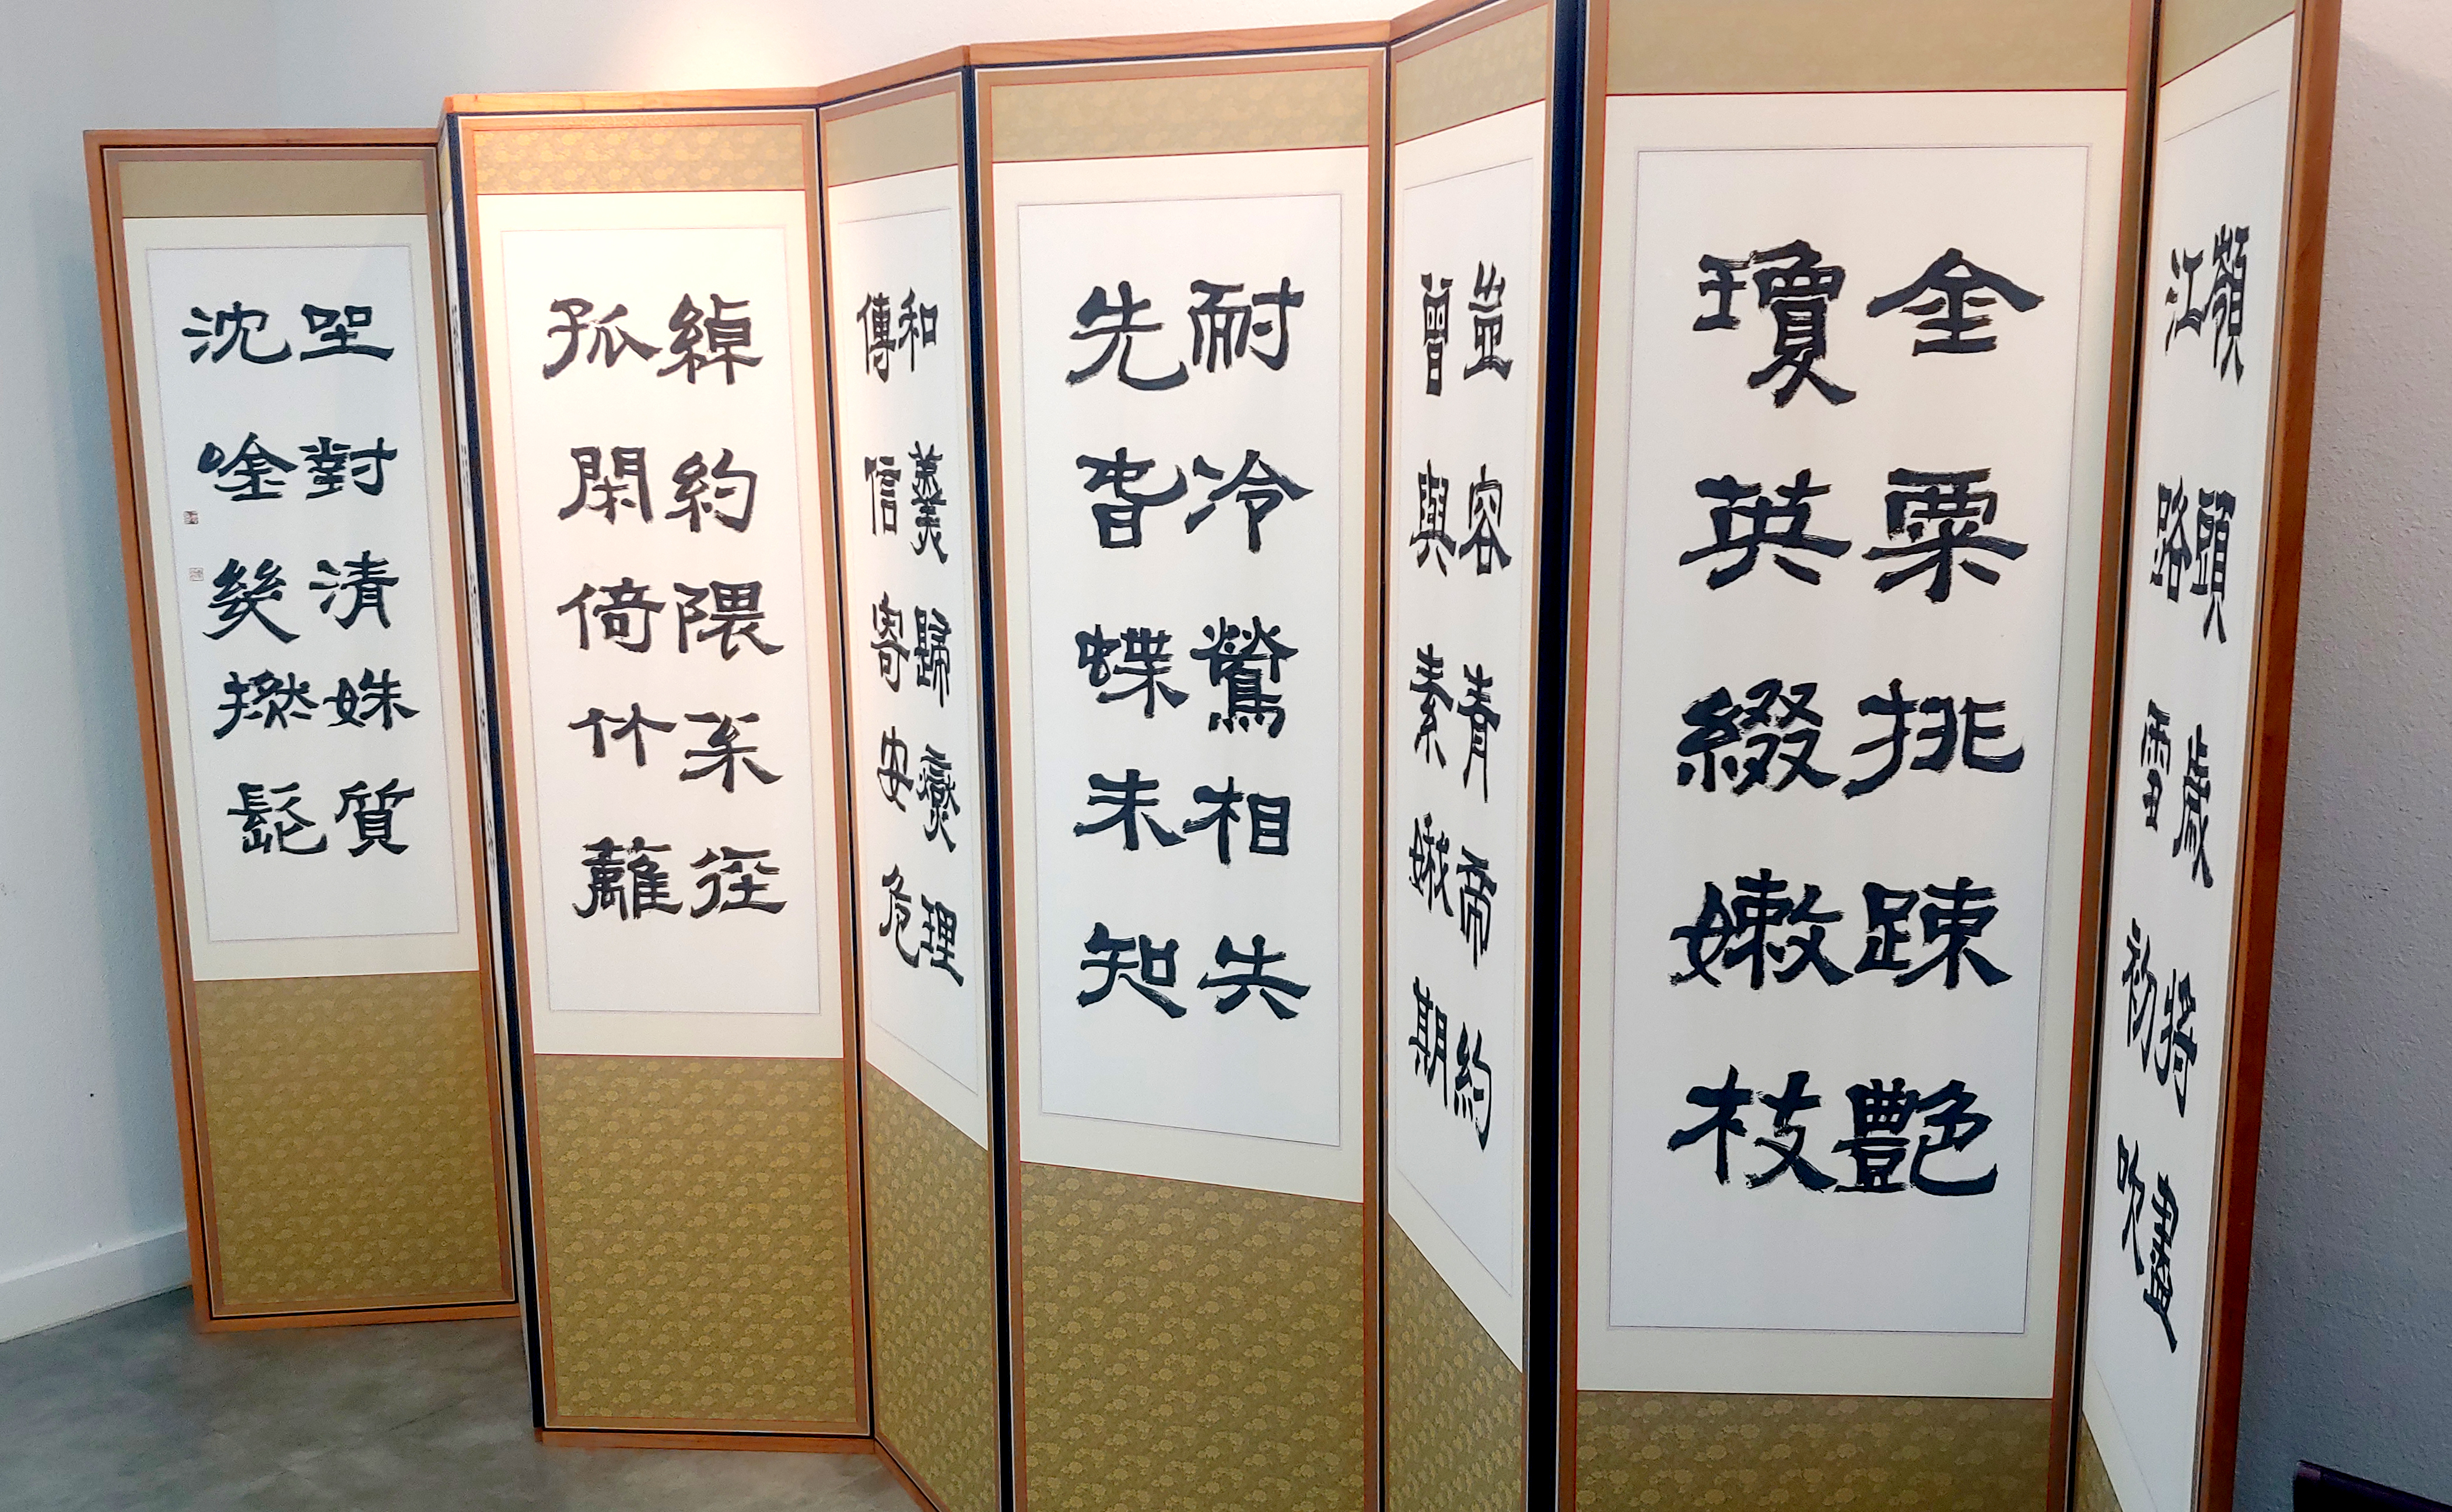 嶺頭歲將盡
江路雪初吹
金粟挑疎艷
瓊英綴嫩枝
豈容青帝約
曾與素娥期
耐冷鶯相失
先旹蝶未知
和羹歸燮理
傳信寄安危
綽約隈徑
孤閑倚竹籬
坐對清姝質
沈唫幾撚髭